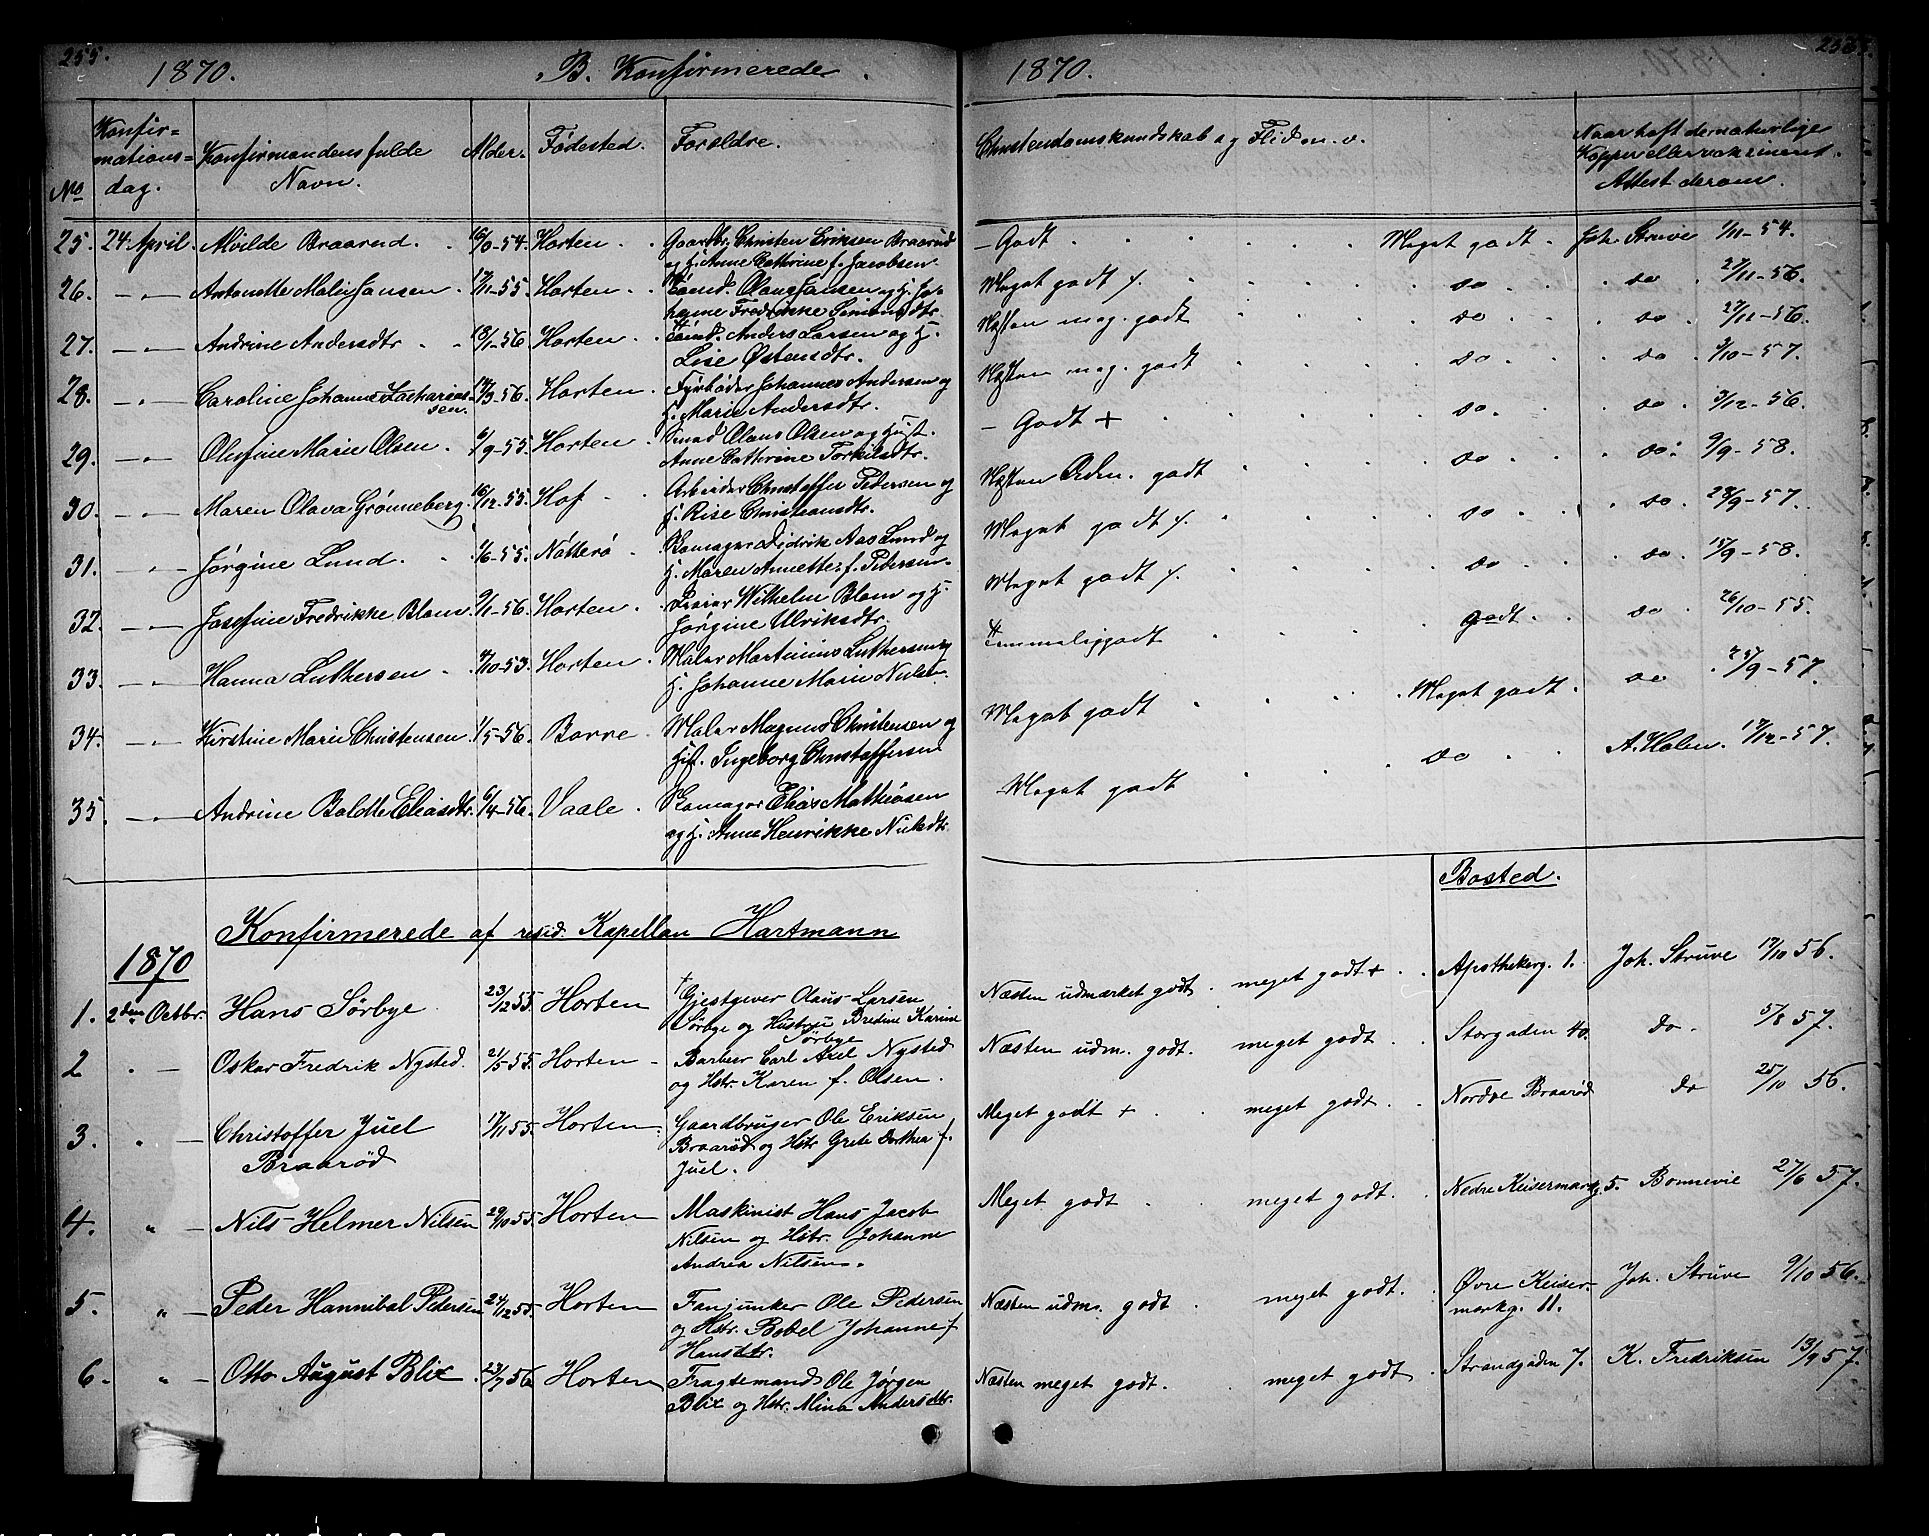 255.
1870. B. Konfirmerede.
No Konfir=mations=dag. Konfirmandens fulde Navn. Alder. Fødested. Forældre.
25. 24 April. Alvilde Braarud. -54. Horten. Gaardbr. Christen Eriksen Braarud
og H. Anne Cathrine f. Jacobsen.
26. -"- Antonette Malie Jansen. 17/11-55. Horten. Tømd. Olaus Jansen og H. Jo-
hanne Fredrikke Simensdtr.
27. -"- Andrine Andersdtr. 18/1-56. Horten. Tømd. Anders Larsen og H.
Lise Østensdtr.
28. -"- Caroline Johanne Zacharias-
sen. 14/3-56. Horten. Fyrbøder Johannes Andersen og
H. Marie Andersdtr.
29. -"- Olufine Marie Olsen. 6/9-55. Horten. Smed Olaus Olsen og Hust.
Anne Cathrine Torkildtr.
30. -"- Maren Olava Grønneberg. 16/12-55. Hof. Arbeider Christoffer Pedersen og
H. Rise Christiansdtr.
31. -"- Jørgine Lund. 1/6-55. Nøtterø. Skomager Didrik Aas Lund og
H. Maren Annette f. Pedersen.
32. -"- Josefine Fredrikke Blom. 9/11-56. Horten. Wilhelm Blom og H.
Jørgine Ulriksdtr.
33. -"- Hanna Luthersen. 4/10-53. Horten. Maler Martinius Luthersen og
H. Johanne Marie Nielsen.
34. -"- Kirstine Marie Christensen. 1/5-56. Borre. Maler Magnus Christensen og
H. f. Ingeborg Christoffersen
35. -"- Andrine Bolette Eliasdtr. 6/4-56. Vaale. Skomager Elias Mathisen
og H. Anne Henrikke Nielsdtr.
Konfirmerede af resid. Kapellan Hartmann
1870
1. 2den Octbr. Hans Sørbye. 23/12 55. Horten † Gjestgiver Olaus Larsen
Sørbye og Hustru Bredine Karine
Sørbye
2 " - Oskar Fredrik Nysted. 21/5-55. Horten - Barber Carl Axel Nysted
og Hstr. Karen f. Olsen.
3. " - Christoffer Juel
Braarød 17/11 55. Horten. Gaardbruger Ole Eriksen
Braarød og Hstr Grete Dorthea f.
Juel.
4. " - Nils Helmer Nilsen 29/10 55. Horten Maskinist Hans Jacob
Nilsen og Hstr. Johanne
Andrea Nilsen.
5. " - Peder Hannibal Pedersen 24/12 55. Horten Fanjunker Ole Pedersen
og Hstr. Bebel Johanne f
Hansdtr.
6. " - Otto August Blix. 23/7 56 Horten Fragtemand Ole Jørgen
Blix og Hstr. Mina Andersdtr.
1870.
Christendomskundskab og Flid m. v. Naar haft de naturlige
Kopper eller vaksineret.
Attest derom.
- Godt. Meget godt. Joh. Struve 1/11-54.
Meget godt /. do do 27/11-56.
Næsten meg. godt do do 27/11-56.
Næsten meg. godt do do 3/10-57.
- Godt + do. do. 3/12-56.
Næsten Orden. godt do do. 9/9-58.
Meget godt /. do do 28/9-57.
Meget godt /. do do 15/9-58.
Temmelig godt godt. do 26/10-55.
Meget godt Meget godt. do 25/9-57.
Meget godt do A. Holen. 17/12-57.
Bosted.
Næsten udmærket godt. meget godt + Apothekerg. 1. Joh. Struve 17/10 56.
Næsten udm. godt. meget godt. Storgaden 40. do. 5/8 57.
Meget godt + meget godt. Nordre Braarød do 25/10 56.
Meget godt. meget godt. Nedre Keisermarkg. 5. Bonnevie 27/6 57.
Næsten udm. godt. meget godt. Øvre Keiser-
markg. 11. Joh. Struve 9/10 56.
Næsten meget godt. meget godt. Strandgaden 7. K. Fredriksen 13/9 57.